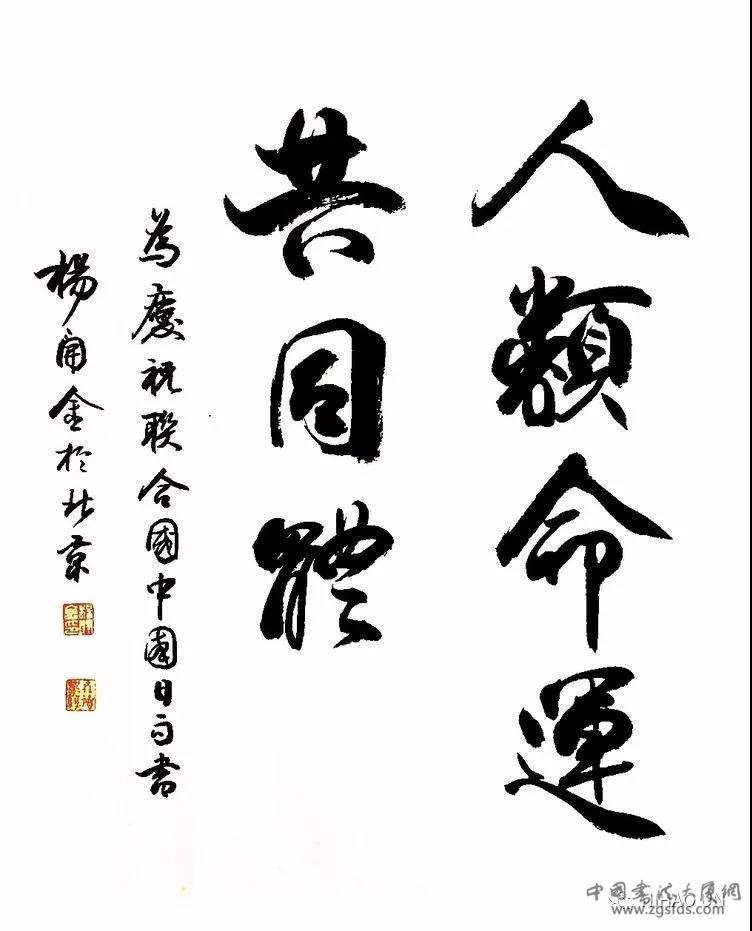 人類命運
共同體
為慶祝聯合國中國日而書
楊開金於北京
中國書法大厦網
www.zgsfds.com